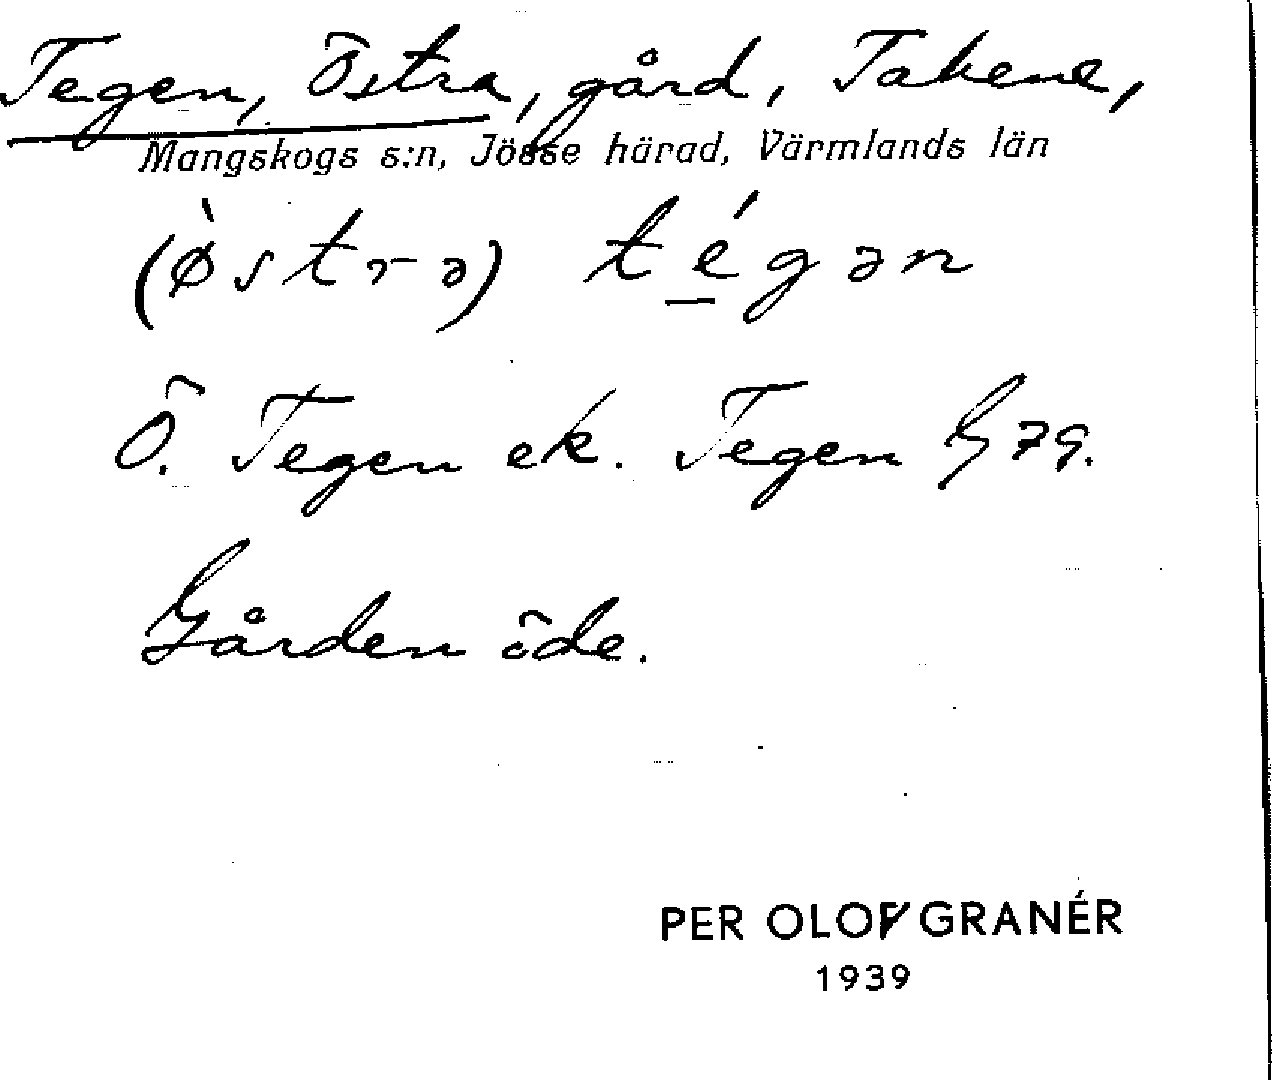 Tegen, Östra, gård, Takene,
Mangskogs s:n, Jösse härad, Värmlands län
(ø̀strə) té̱gən
Ö. Tegen ek. Tegen G 79.
Gården öde.
PER OLOF GRANÉR
1939